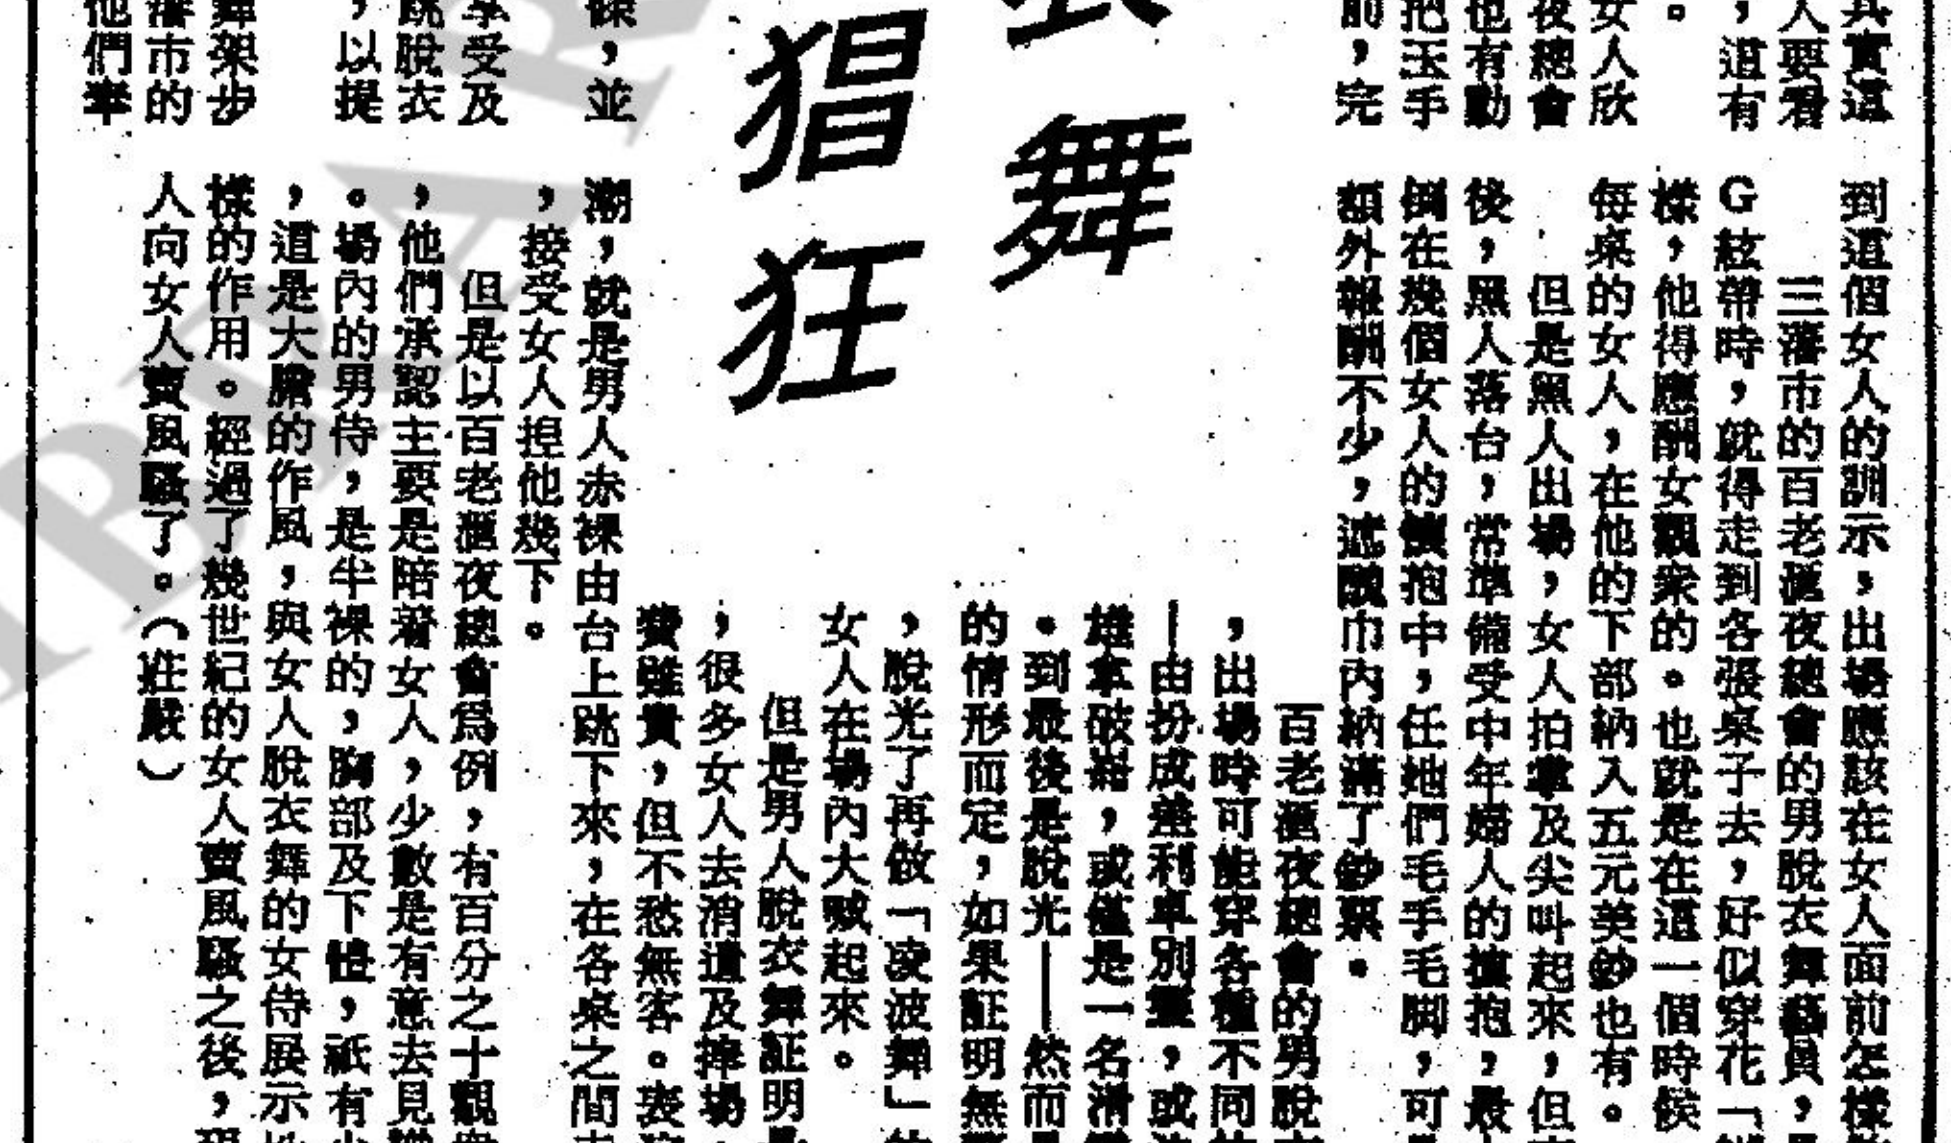 其實這
人要看
，這有
。
女人欣
夜總會
也有動
把玉手
前，完
到這個女人的訓示，出場應該在女人面前怎樣
三藩市的百老滙夜總會的男脫衣舞藝員，
G絃帶時，就得走到各張桌子去，好似穿花「
樣，他得應酬女觀衆的。也就是在這一個時候
每桌的女人，在他的下部納入五元美鈔也有。
但是黑人出場，女人拍掌及尖叫起來，但
後，黑人落台，常準備受中年婦人的擁抱，最
倒在幾個女人的懷抱中，任她們毛手毛脚，可
額外報酬不少，遮醜巾內納滿了鈔票。
舞
猖
狂
百老滙夜總會的男脫
，出場時可能穿各種不同
—由扮成差利卓別靈，或
雄拿破崙，或僅是一名清
。到最後是脫光——然而
的情形而定，如果証明無
，脫光了再做「凌波舞」
女人在場內大喊起來。
但是男人脫衣舞証明
，很多女人去消遣及捧場
費雖貴，但不愁無客。表
條，並
享受及
跳脫衣
，以提
舞架步
藩市的
他們牽
潮，就是男人赤裸由台上跳下來，在各桌之間
，接受女人揑他幾下。
但是以百老滙夜總會爲例，有百分之十觀
，他們承認主要是陪着女人，少數是有意去見
。場內的男侍，是半裸的，胸部及下體，祇有
，這是大膽的作風，與女人脫衣舞的女侍展示
樣的作用。經過了幾世紀的女人賣風騷之後，
人向女人賣風騷了。（莊嚴）